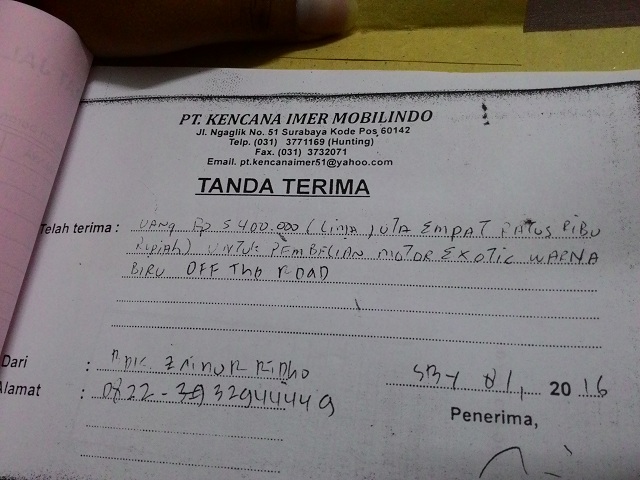 PT. KENCANA IMER MOBILINDO
Jl. Ngaglik No. 51 Surabaya Kode Pos 60142
Telp. (031) 3771169 (Hunting)
Fax. (031) 3732071
Email. pt.kencanaimer51@yahoo.com
TANDA TERIMA
Telah terima : UANG Rp 5.400.000 (Lima JUTA EMPAT RATUS RIBU
Rupiah) UNTUK PEMBELIAN MOTOR EXOTIC WARNA
BIRU OFF The ROAD
Dari : ZAINUR RIDHO
Alamat :
SBY 2016
Penerima,